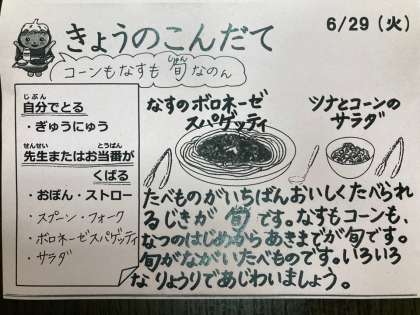 きょうのこんだて
6/29（火）
コーンもなすも旬なのん
しゅん
じぶん
自分でとる
・ぎゅうにゅう
せんせい とうばん
先生またはお当番が
くばる
・おぼん・ストロー
・スプーン・フォーク
・ボロネーゼスパゲッティ
・サラダ
なすのボロネーゼ
スパゲッティ
ツナとコーンの
サラダ
たべものがいちばんおいしくたべられ
るじきが旬です。なすもコーンも、
なつのはじめからあきまでが旬です。
旬がながいたべものです。いろいろ
なりょうりであじわいましょう。